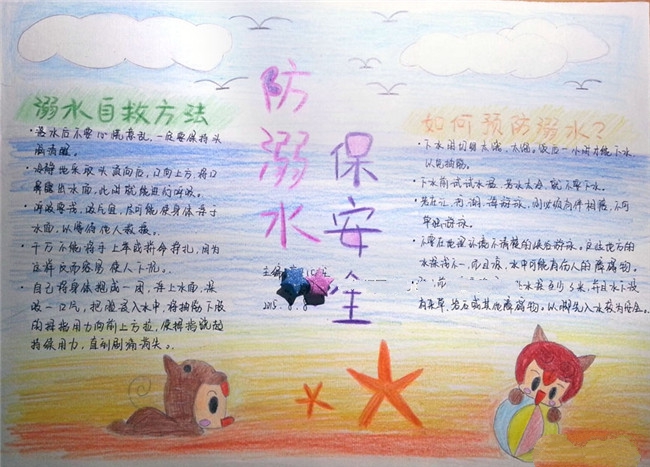 防溺水
保安全
溺水自救方法
·落水后不要心慌意乱,一定要保持头
脑清醒。
·冷静地采取头顶向后,口向上方,将口
鼻露出水面,此时就能进行呼吸。
·呼吸要浅,吸气宜尽可能使身体浮于
水面,以等待他人救援。
·千万不能将手上举或拼命挣扎,因为
这样反而容易使人下沉。
·自己将身体抱成一团,浮上水面,深
吸一口气,把脸浸入水中,将抽筋下肢
的拇指用力向前上方拉,使拇指跷起
持续用力,直到剧痛消失。
如何预防溺水?
·下水时切勿太饿、太饱。饭后一小时才能下水,
以免抽筋。
·下水前试试水温,若水太冷,就不要下水。
·若在江、河、湖、海游泳,则必须有伴相陪,不可
单独游泳。
·不要在地理环境不清楚的
水中可能有伤人的障碍物。
有杂草、岩石或其他障碍物。以脚先入水较为安全。
主编
2015